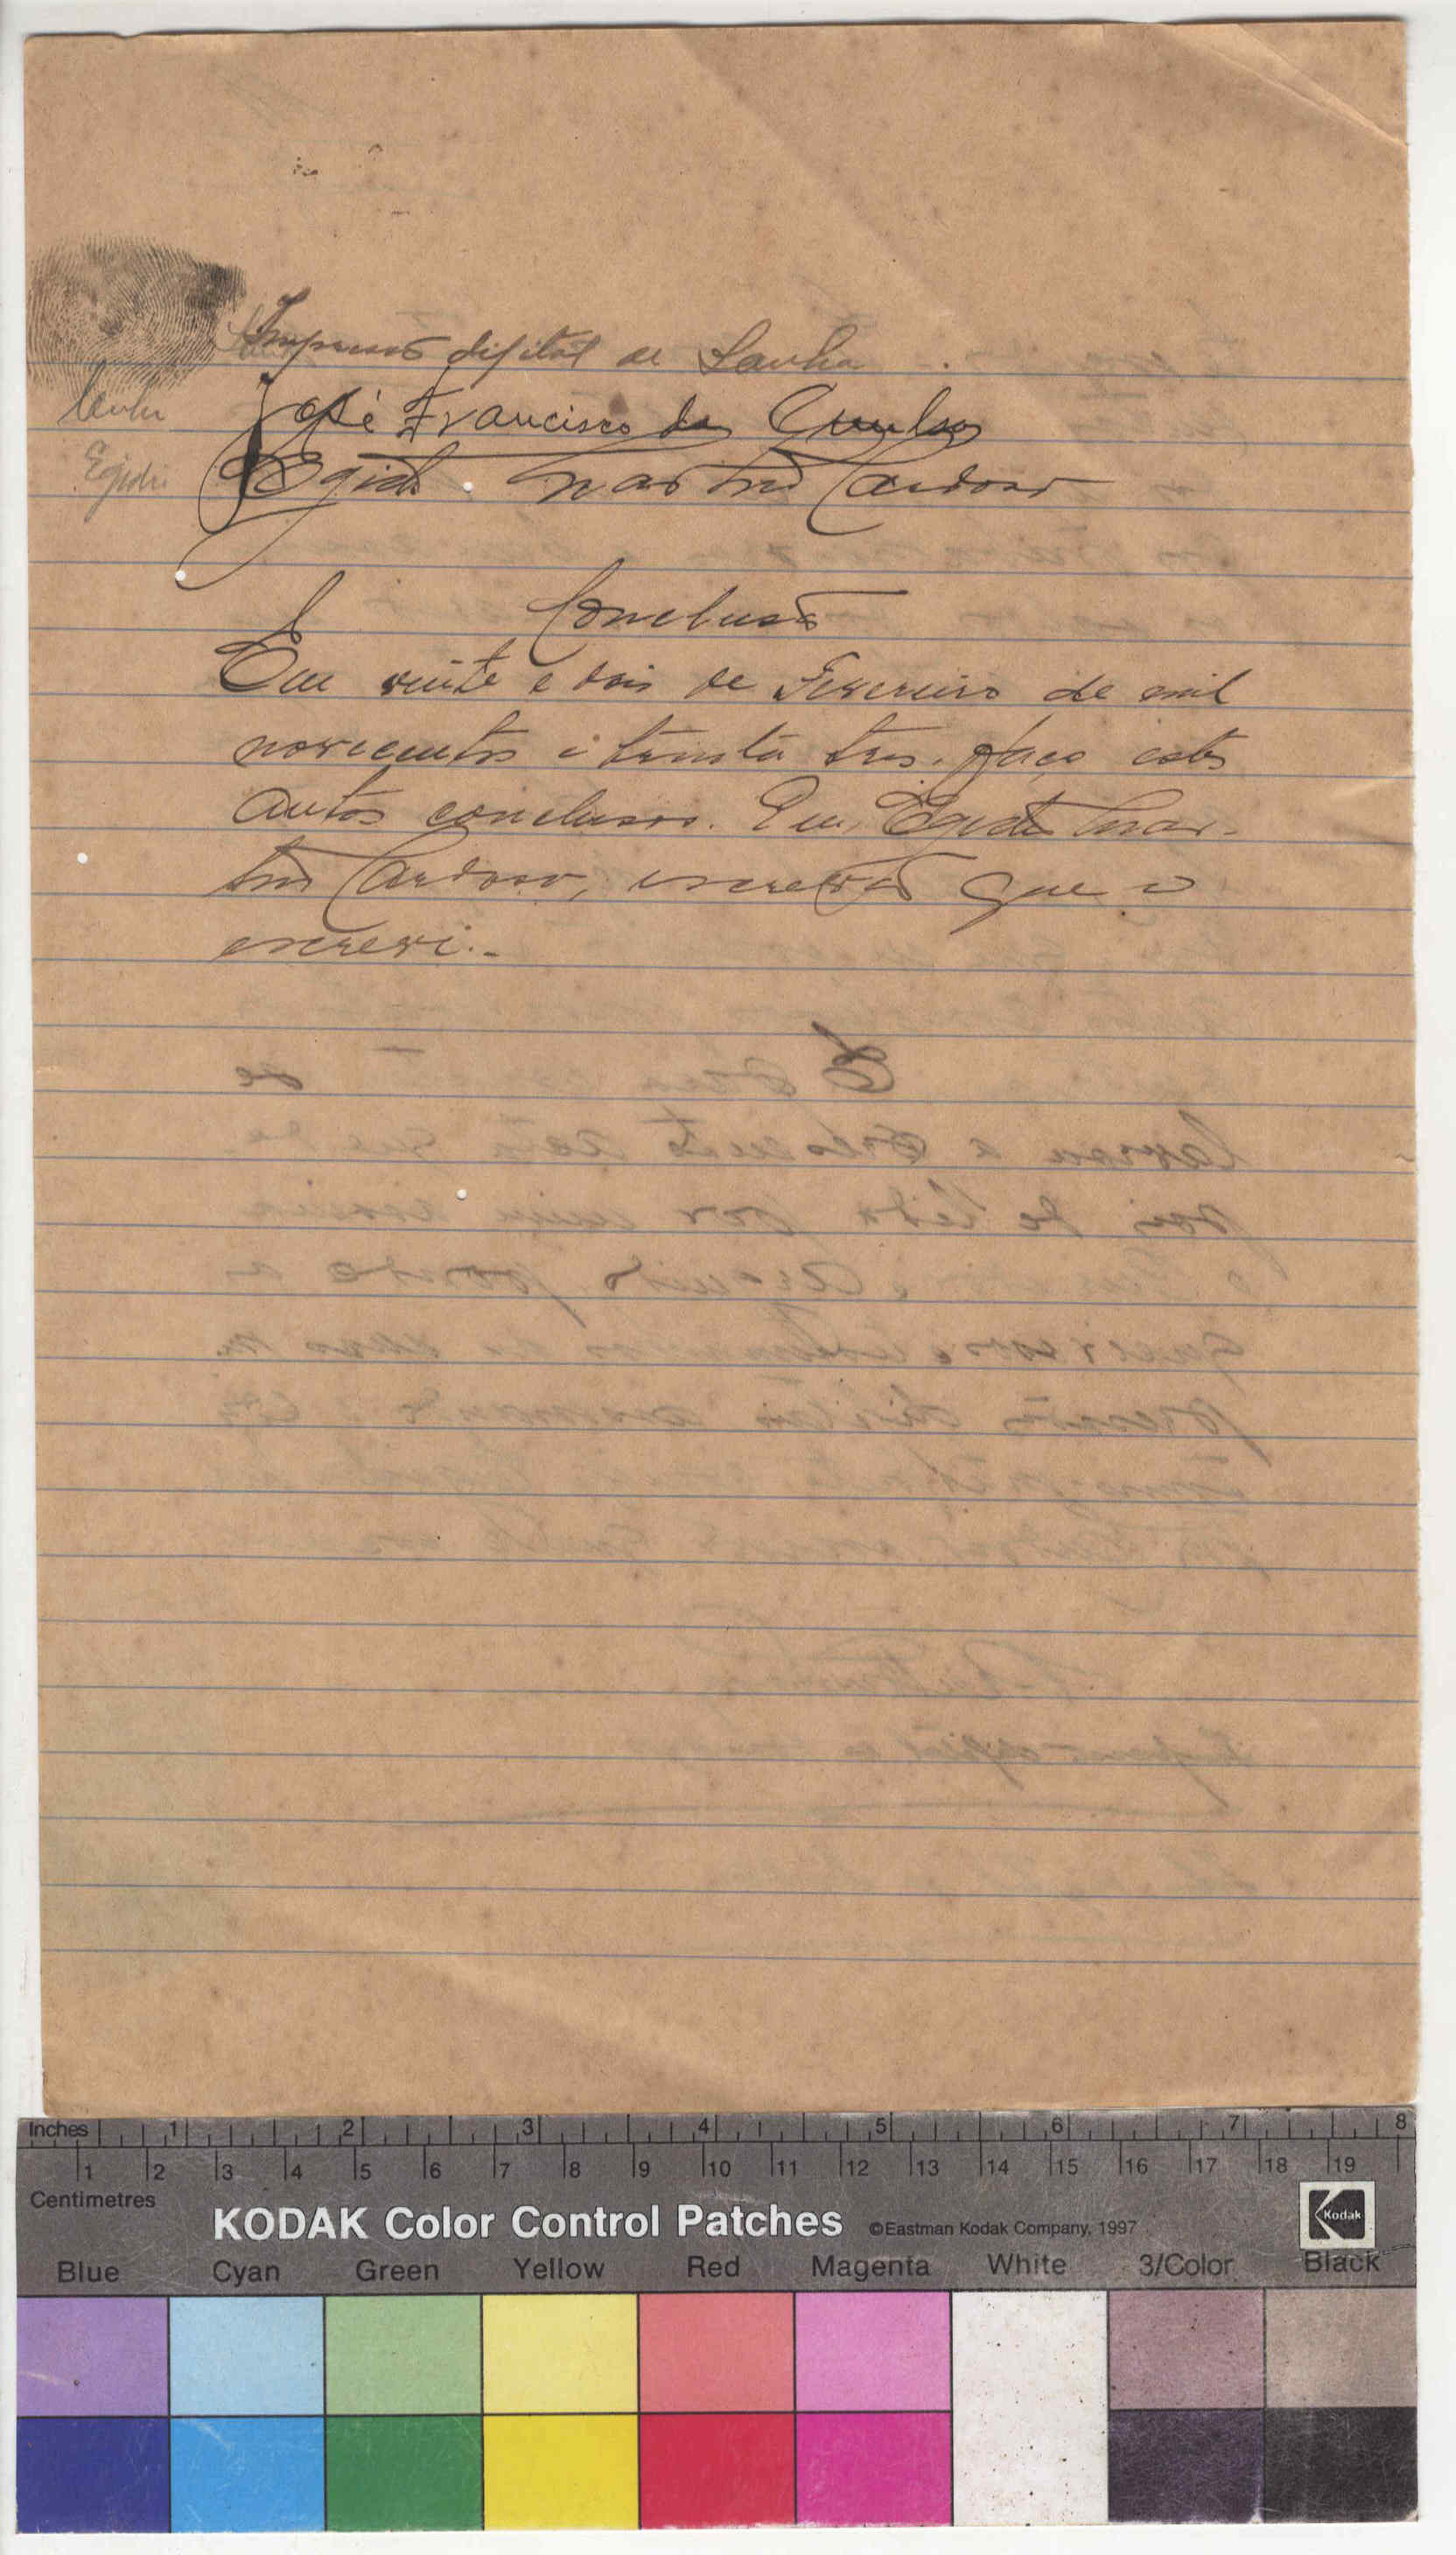 Impressão digital de Sanha
José Francisco da
Egidio Martins Cardoso
Egidio
Conclusão
Em vinte e dois de Fevereiro de mil
novecentos e trinta tres, faço estes
autos conclusos. Eu, Egidio Mar-
tins Cardoso, escrevão que o
escrevi.-
Inches 1 2 3 4 5 6 7 8
1 2 3 4 5 6 7 8 9 10 11 12 13 14 15 16 17 18 19
Centimetres
KODAK Color Control Patches ©Eastman Kodak Company, 1997 Kodak
Blue Cyan Green Yellow Red Magenta White 3/Color Black